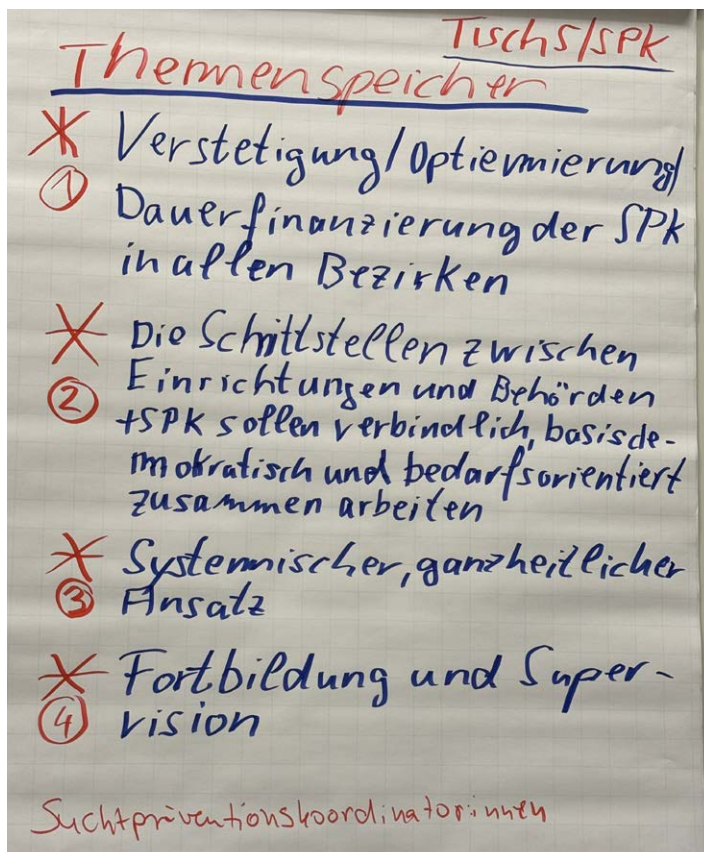 Tisch 5/SPK
Themenspeicher
① Verstetigung/Optiemierung/
Dauerfinanzierung der SPK
in allen Bezirken
② Die Schnittstellen zwischen
Einrichtungen und Behörden
+SPK sollen verbindlich, basisde-
mokratisch und bedarfsorientiert
zusammen arbeiten
③ Systemischer, ganzheitlicher
Ansatz
④ Fortbildung und Super-
vision
Suchtpräventionskoordinator:innen